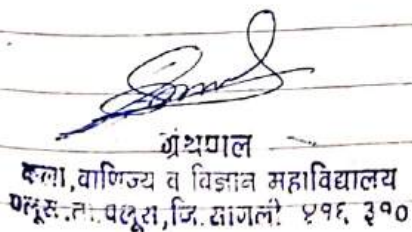 ग्रंथपाल
कला, वाणिज्य व विज्ञान महाविद्यालय
पलूस. ता. पलूस, जि. सांगली ४१६ ३१०